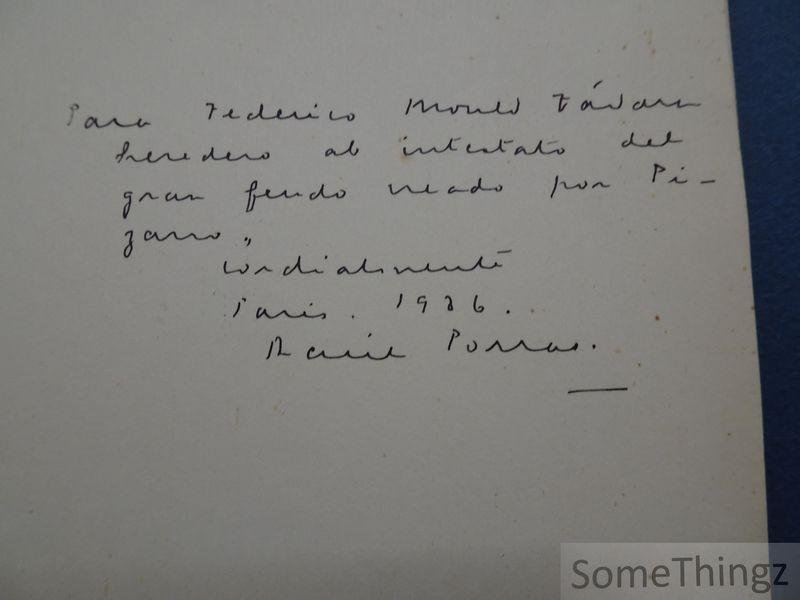 Para Federico Mould Távara
heredero ab intestato del
gran feudo creado por Pi-
zarro,,
cordialmente
Paris. 1936.
Raúl Porras.
SomeThingz